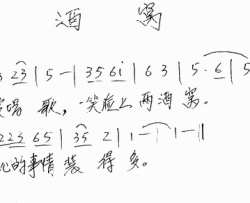 酒窝
3 23 | 5 - | 35 6i | 6 3 | 5· 6 | 5
唱 歌，一笑脸上两酒窝。
223 65 | 35 2 | 1 - | 1 - ‖
的事情装得多。